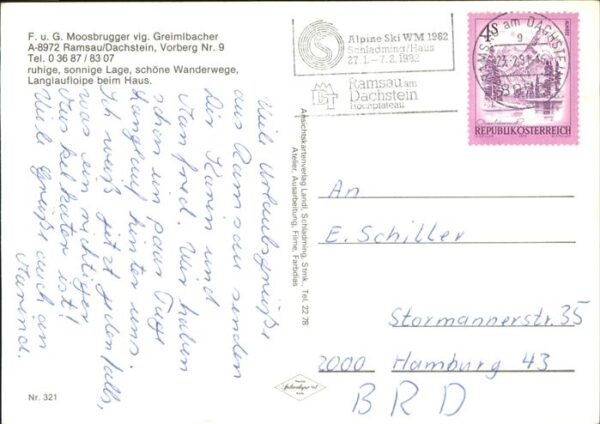 F. u. G. Moosbrugger vlg. Greimlbacher
A-8972 Ramsau/Dachstein, Vorberg Nr. 9
Tel. 0 36 87 / 83 07
ruhige, sonnige Lage, schöne Wanderwege,
Langlaufloipe beim Haus.
Viele Urlaubsgrüße
aus Ramsau senden
Dir Karin und
Manfred. Wir haben
schon ein paar Tage
Langlauf hinter uns.
Ich weiß jetzt jedenfalls,
was ein richtiger
Muskelkater ist!
Viele Grüße auch an
Nr. 321
Ansichtskartenverlag Landl, Schladming, Stmk., Tel. 22 78
Atelier, Ausarbeitung, Filme, Farbdias
Alpine Ski WM 1982
Schladming/Haus
27.1.-7.2.1982
Ramsau am
Dachstein
Hochplateau
RAMSAU am DACHSTEIN
REPUBLIK ÖSTERREICH
An
E. Schiller
Stormannerstr. 35
2000 Hamburg 43
BRD